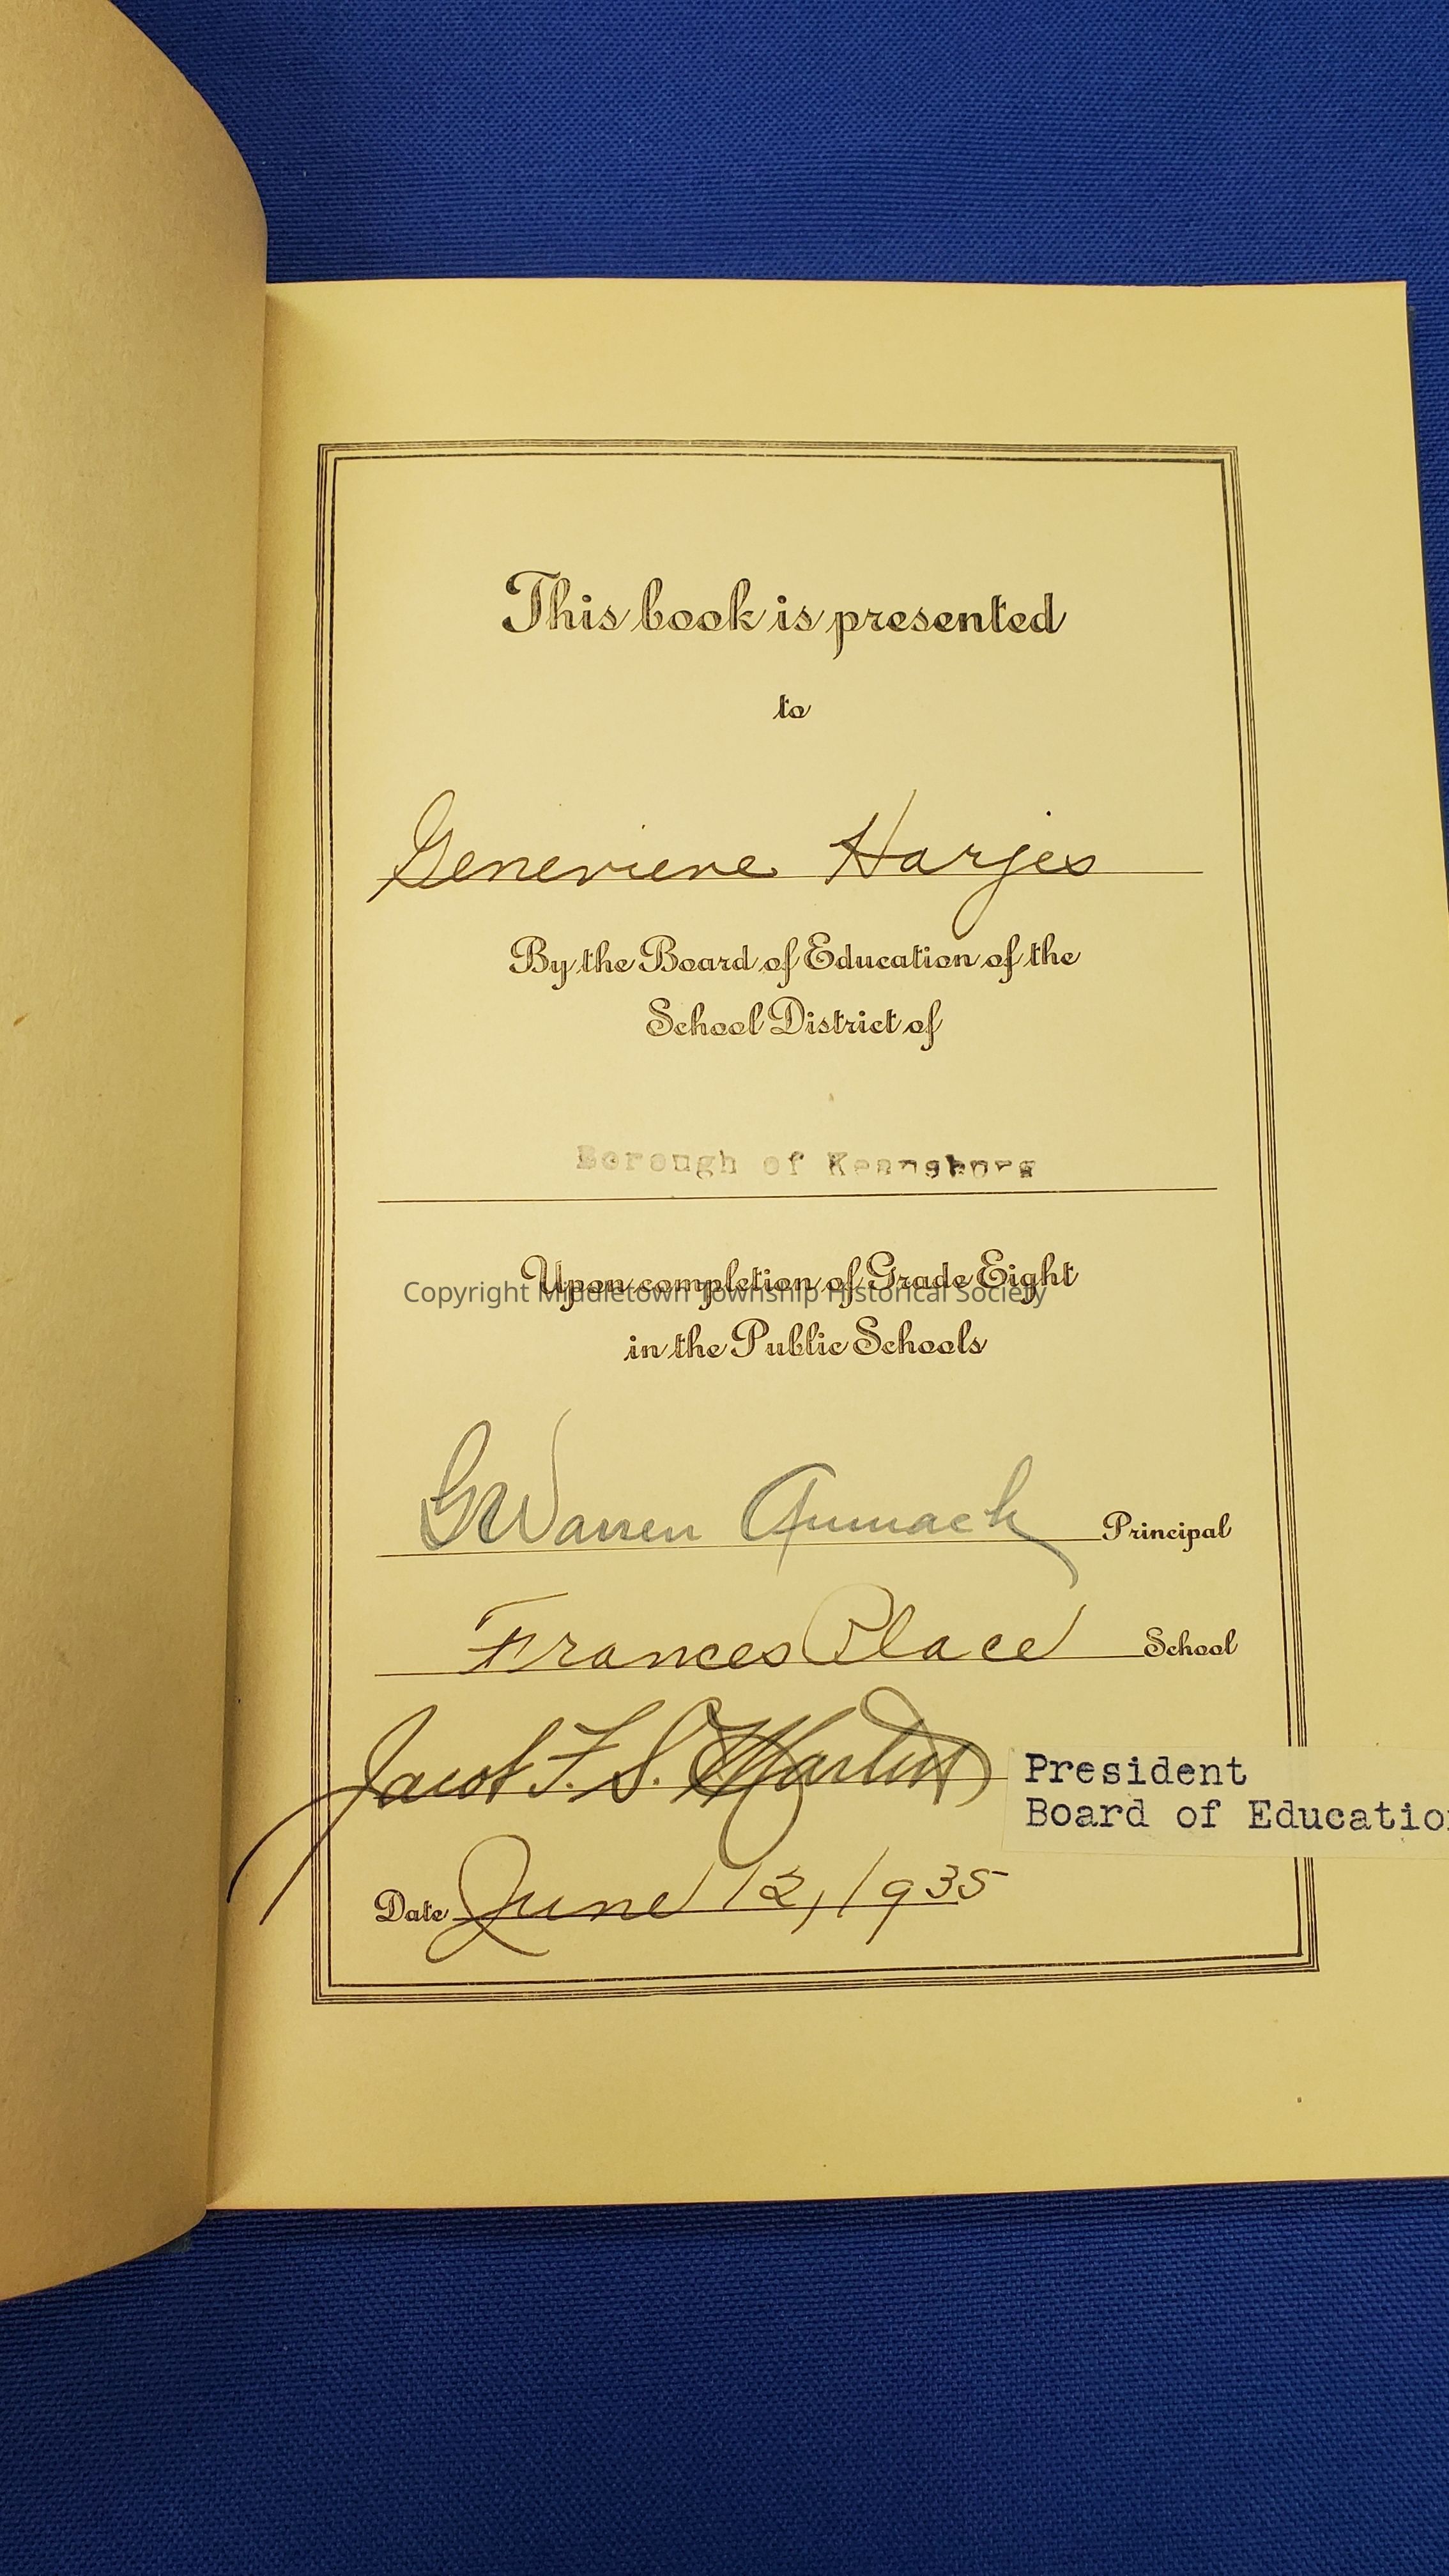 This book is presented
to
Genevieve Harjes
By the Board of Education of the
School District of
Borough of Keansburg
Upon completion of Grade Eight
Copyright Middletown Township Historical Society
in the Public Schools
G Warren Aumack Principal
Frances Place School
Jacob F. S. Martin President
Board of Education
Date June 12, 1935